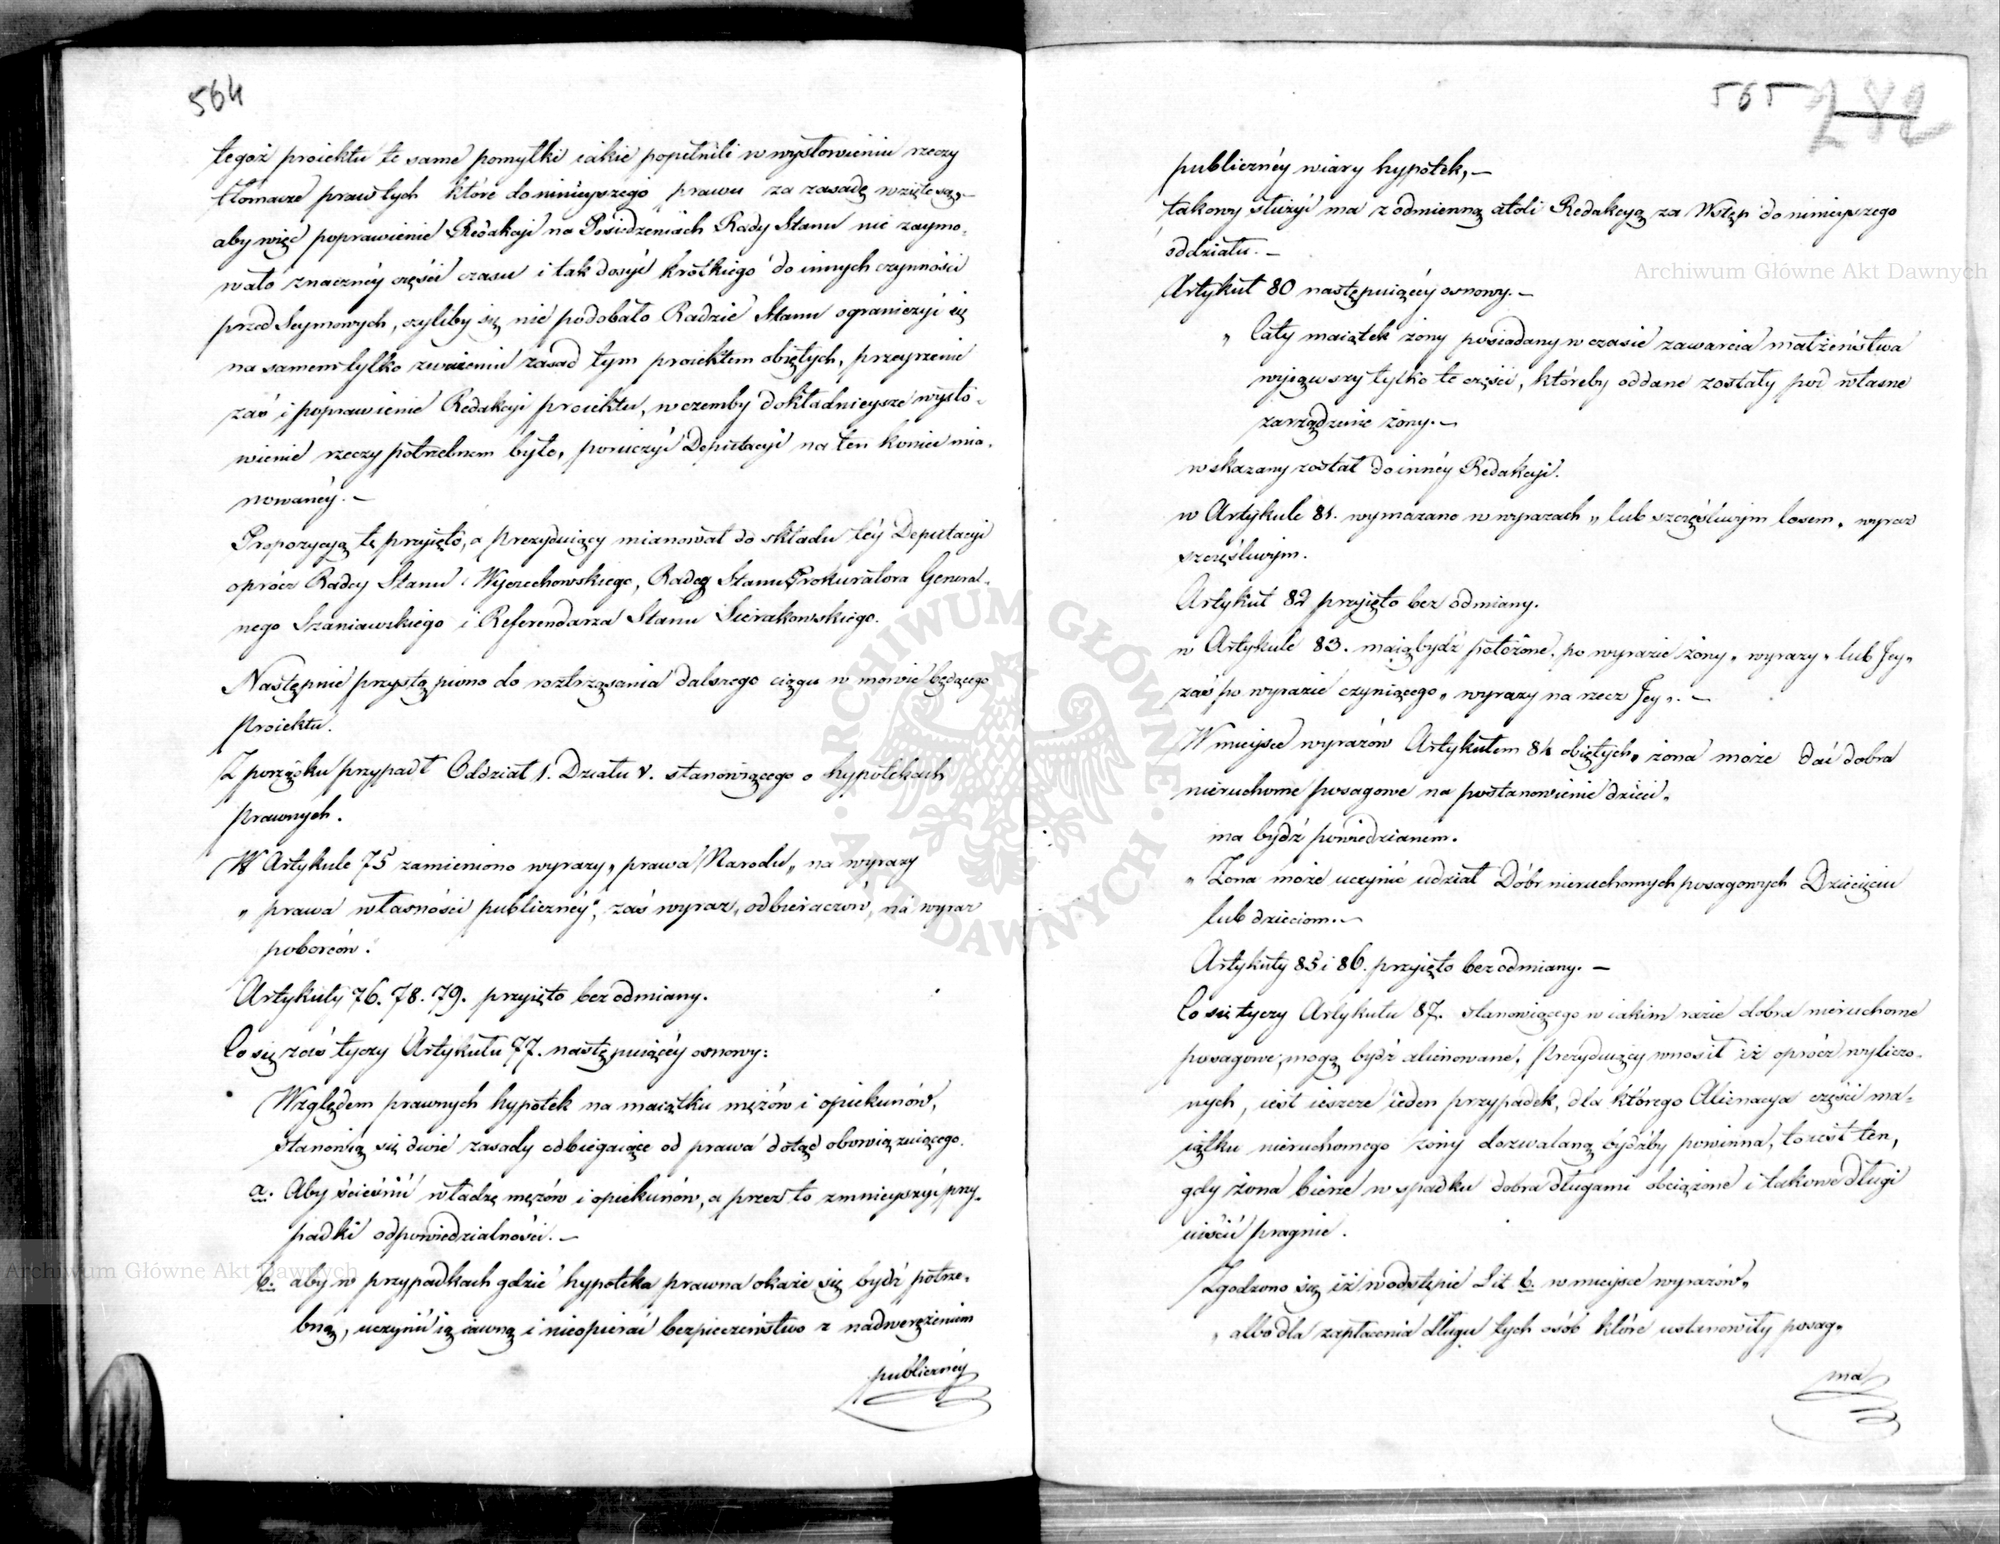 564
tegoż proiektu te same pomyłki iakie popełnili w wysłowieniu rzeczy
tłomacze praw tych które do ninieyszego prawu za zasadę wzięte są,
aby więc poprawienie Redakcji na Posiedzeniach Rady Stanu nie zaymo-
wało znacznéy części czasu i tak dosyć krótkiego do innych czynności
przed Seymowych, czyliby się nie podobało Radzie Stanu ograniczyć się
na samem tylko zważeniu zasad tym proiektem obiętych, przeyrzenie
zaś i poprawienie Redakcji proiektu, w czemby dokładnieysze wysło-
wienie rzeczy potrzebnem było, poruczyć Deputacyi na ten koniec mia-
nowanéy. —
Propozycyą tę przyięto, a Prezyduiący mianował do składu téy Deputacyi
oprócz Radcy Stanu Wyczechowskiego, Radcę Stanu Prokuratora General-
nego Szaniawskiego i Referendarza Stanu Sierakowskiego.
Następnie przystąpiono do roztrząsania dalszego ciągu w mowie będącego
Proiektu.
Z porządku przypadł Oddział 1. Działu V. stanowiącego o hypotekach
Prawnych.
W Artykule 75 zamieniono wyrazy „prawa Narodu„ na wyrazy
„prawa własności publicznéy", zaś wyraz „odbieraczów„ na wyraz
poborców.
Artykuły 76. 78. 79. przyięto bez odmiany.
Co się zaś tyczy Artykułu 77. następuiącéy osnowy:
Względem prawnych hypotek na maiątku mężów i opiekunów,
stanowią się dwie zasady odbiegaiące od prawa dotąd obowiązuiącego.
a. Aby ścieśnić władzę mężów i opiekunów, a przez to zmnieyszyć przy-
padki odpowiedzialności. —
b. aby w przypadkach gdzie hypoteka prawna okaże się bydź potrze-
bną, uczynić ią iawną i nieopierać bezpieczeństwo z nadwerężeniem
publicznéy
565 282
publicznéy wiary hypotek, —
takowy służyć ma z odmienną atoli Redakcyą za Wstęp do ninieyszego
oddziału. —
Artykuł 80 następuiącéy osnowy. —
„Cały maiątek żony posiadany w czasie zawarcia małżeństwa
wyiąwszy tylko te części, któreby oddane zostały pod własne
zarządzenie żony. —
wskazany został do innéy Redakcyi.
w Artykule 81. wymazano w wyrazach „lub szczęśliwym losem„ wyraz
szczęśliwym.
Artykuł 82 przyięto bez odmiany.
w Artykule 83. maią bydź położone, po wyrazie żony„ wyrazy „lub Jey„
zaś po wyrazie czyniącego„ wyrazy na rzecz Jey„. —
W mieysce wyrazów Artykułem 84 obiętych„ żona może dać dobra
nieruchome posagowe na postanowienie dzieci„
ma bydź powiedzianem.
„Żona może uczynić udział Dóbr nieruchomych posagowych Dziecięciu
lub dzieciom. —
Artykuły 85 i 86. przyięto bez odmiany. —
Co się tyczy Artykułu 87. stanowiącego w iakim razie dobra nieruchome
posagowe, mogą bydź alienowane, Prezyduiący wnosił iż oprócz wyliczo-
nych, iest ieszcze ieden przypadek, dla którego Alienacya części ma-
iątku nieruchomego żony dozwalaną bydźby powinna, to iest ten,
gdy żona bierze w spadku dobra długami obciążone i takowe długi
uiścić pragnie.
Zgodzono się iż w odstępie Lit b. w mieysce wyrazów„
„albo dla zapłacenia długu tych osób które ustanowiły posag„
ma
Archiwum Główne Akt Dawnych
Archiwum Główne Akt Dawnych
ARCHIWUM GŁÓWNE AKT DAWNYCH